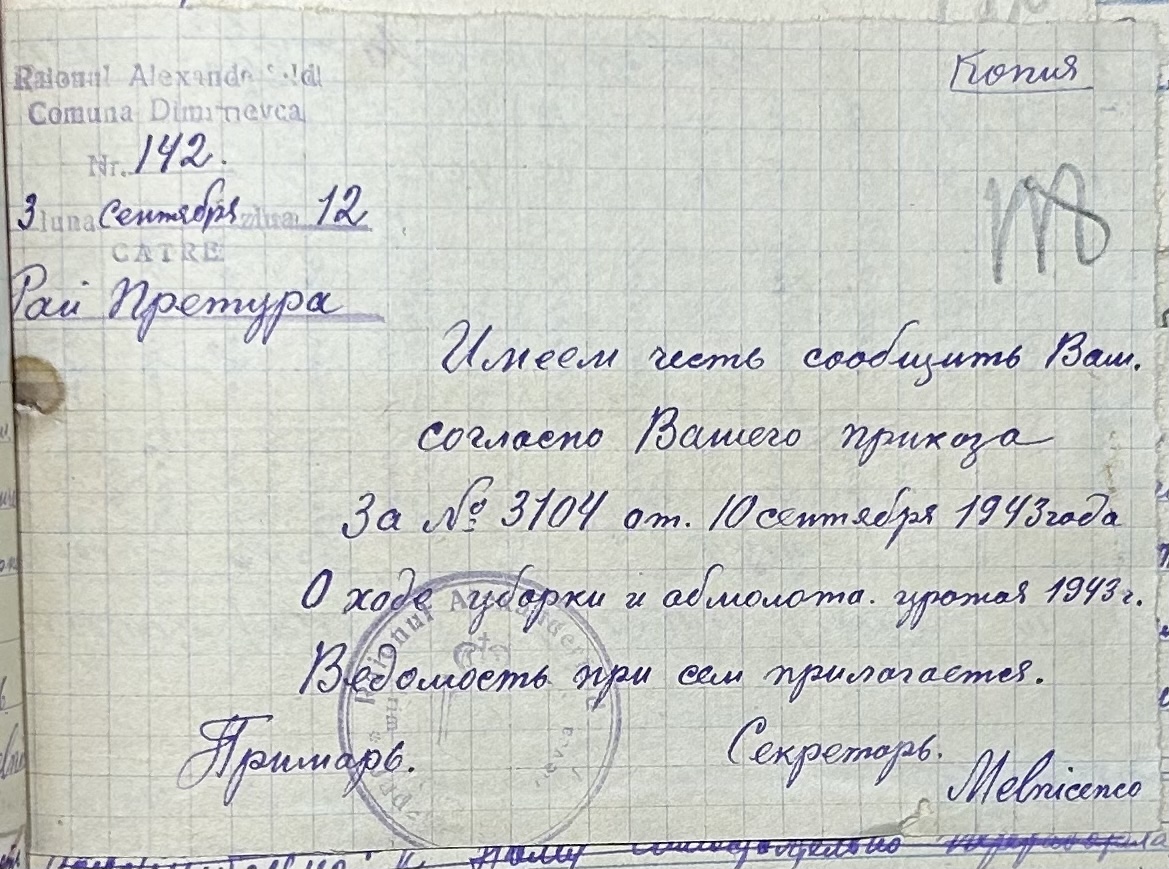 Raionul Alexanderfeld
Comuna Dimitrievca
Nr. 142.
3 luna Сентября ziua 12
CATRE
Рай Претура
Копия
Имеем честь сообщить Вам.
согласно Вашего приказа
За № 3104 от. 10 сентября 1943 года
О ходе уборки и абмолота. урожая 1943 г.
Ведомость при сем прилагается.
Примарь. Секретарь.
Melnicenco
Raionul